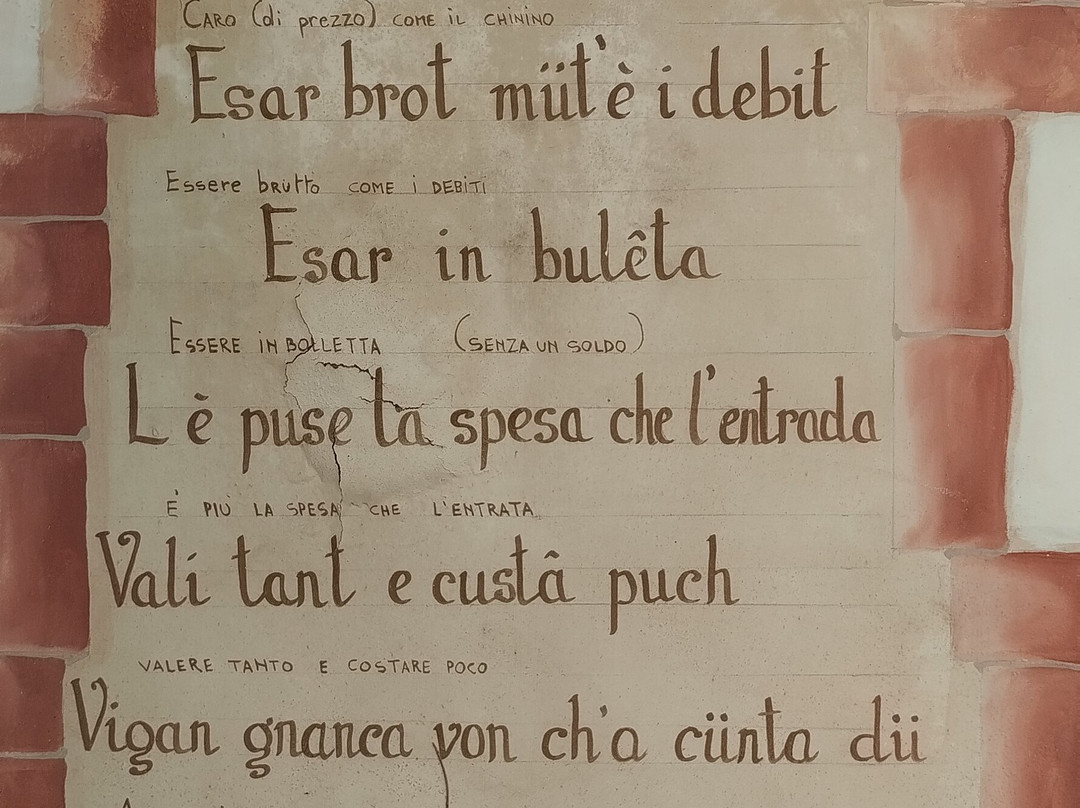 CARO (di prezzo) COME IL CHININO
Esar brot müt'è i debit
Essere brutto COME i DEBITI
Esar in bulêta
ESSERE IN BOLLETTA (SENZA UN SOLDO)
L è puse la spesa che l'entrada
È PIÙ LA SPESA CHE L'ENTRATA
Valí tant e custâ puch
VALERE TANTO E COSTARE POCO
Vigan gnanca von ch'a cünta dü